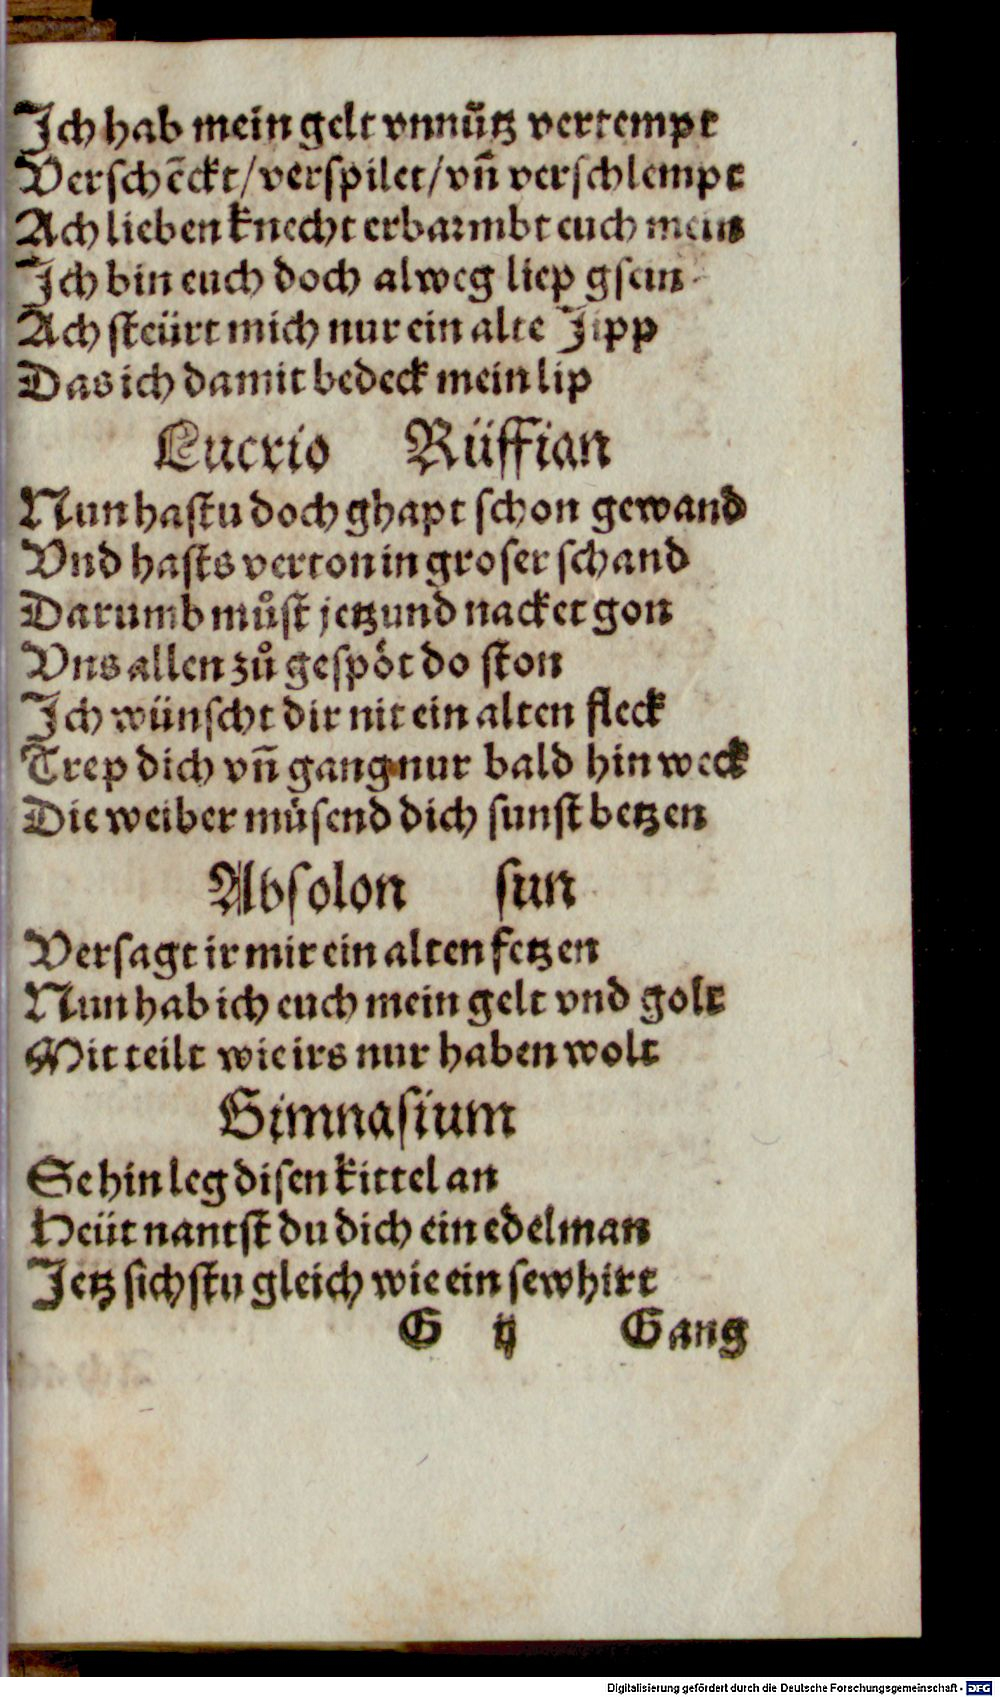 Jch hab mein gelt vnnütz vertempt
Verschēckt/verspilet/vn̄ verschlempt
Ach lieben knecht erbarmbt euch mein
Jch bin euch doch alweg liep gsein
Ach steürt mich nur ein alte Jipp
Das ich damit bedeck mein lip
Lucrio Rüffian
Nun hastu doch ghapt schon gewand
Vnd hasts verton in groser schand
Darumb můst jetzund nacket gon
Vns allen zů gespöt do ston
Jch wünscht dir nit ein alten fleck
Trep dich vn̄ gang nur bald hin weck
Die weiber müsend dich sunst betzen
Absolon sun
Versagt ir mir ein alten fetzen
Nun hab ich euch mein gelt vnd golt
Mit teilt wie irs nur haben wolt
Gimnasium
Se hin leg disen kittel an
Heüt nantst du dich ein edelman
Jetz sichstu gleich wie ein sewhirt
G ij Gang
Digitalisierung gefördert durch die Deutsche Forschungsgemeinschaft - DFG